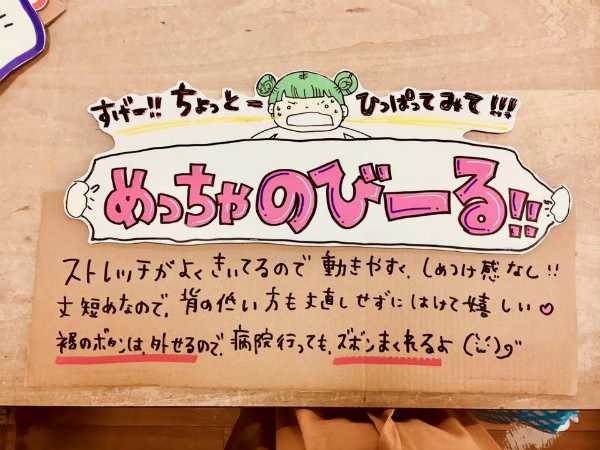 すげー!! ちょっと= ひっぱってみて!!!
めっちゃのびーる!!
ストレッチがよくきいてるので 動きやすく、しめつけ感なし!!
丈短めなので、背の低い方も丈直しせずにはけて嬉しい♥
裾のボタンは、外せるので、病院行っても、ズボンまくれるよ